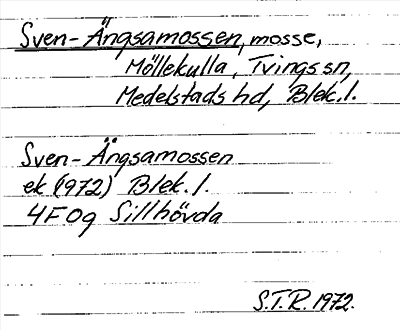 Sven-Ängsamossen, mosse,
Möllekulla, Tvings sn,
Medelstads hd, Blek. l.
Sven-Ängsamossen
ek (1972) Blek. l.
4F 0g Sillhövda
S.T.R. 1972.